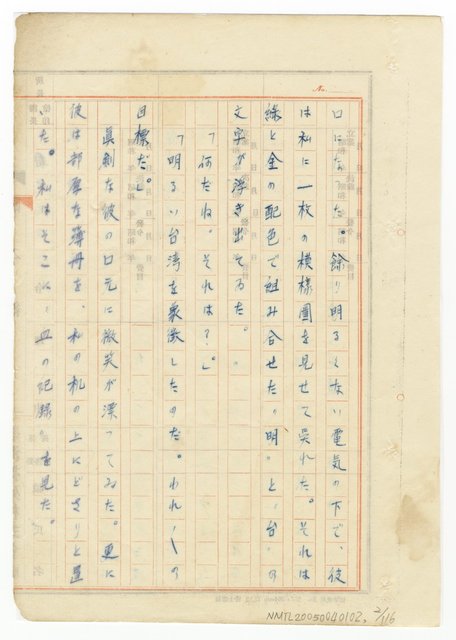 No.
口になつた。餘り明るくない電気の下で、彼
は私に一枚の模様圖を見せて呉れた。それは
緑と金の配色で組み合せた〝明〟と〝台〟の
文字が浮き出てゐた。
「何だね。それは?」。
「明るい台湾を象徴したのだ。われ〳〵の
目標だ」。
眞剣な彼の口元に微笑が漂つてゐた。更に
彼は部厚な薄冊を、私の机の上にどさりと置
いた。私はそこに〝血の記録〟を見た。
NMTL20050040102, 2/116